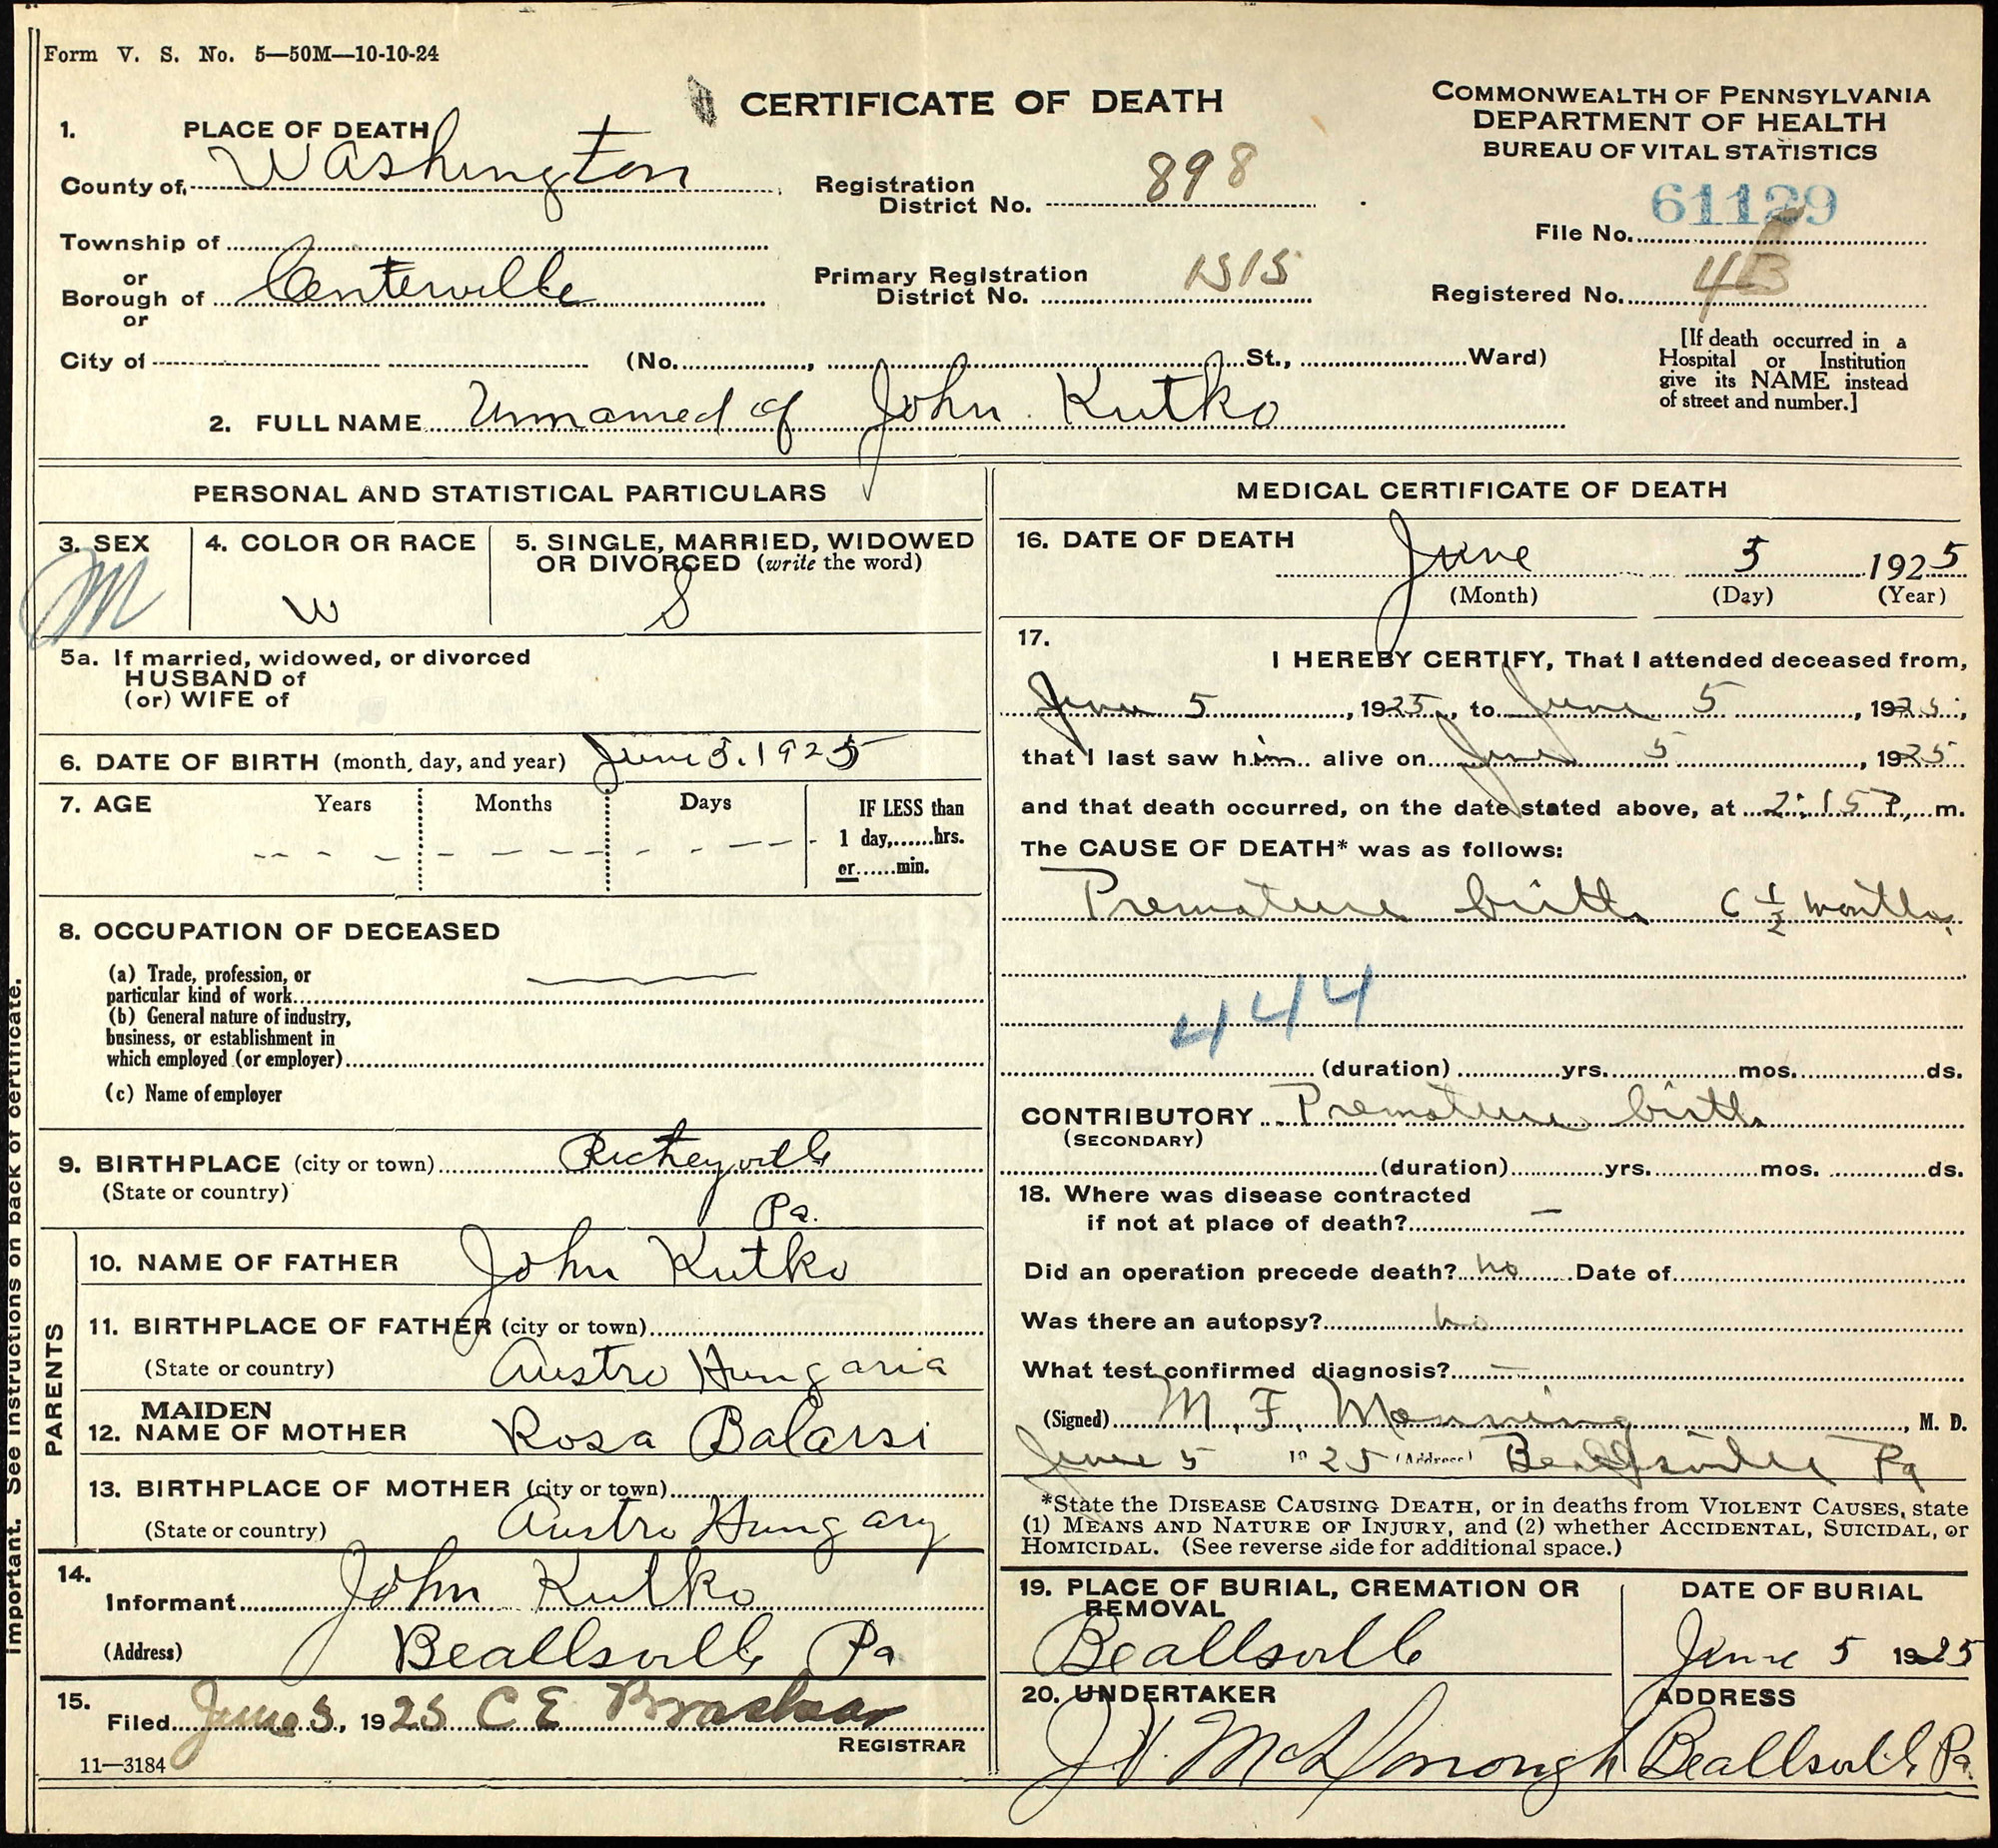 Form V. S. No. 5—50M—10-10-24
CERTIFICATE OF DEATH
COMMONWEALTH OF PENNSYLVANIA
DEPARTMENT OF HEALTH
BUREAU OF VITAL STATISTICS
1. PLACE OF DEATH
County of Washington
Registration District No. 898
File No. 61129
Township of
or
Borough of Centerville
or
Primary Registration District No. 1515
Registered No. 43
City of (No. , St., Ward)
[If death occurred in a
Hospital or Institution
give its NAME instead
of street and number.]
2. FULL NAME Unnamed of John Kutko
PERSONAL AND STATISTICAL PARTICULARS
3. SEX
M
4. COLOR OR RACE
W
5. SINGLE, MARRIED, WIDOWED
OR DIVORCED (write the word)
S
5a. If married, widowed, or divorced
HUSBAND of
(or) WIFE of
6. DATE OF BIRTH (month, day, and year) June 5. 1925
7. AGE Years Months Days
IF LESS than
1 day,......hrs.
or......min.
8. OCCUPATION OF DECEASED
(a) Trade, profession, or
particular kind of work
(b) General nature of industry,
business, or establishment in
which employed (or employer)
(c) Name of employer
9. BIRTHPLACE (city or town) Richeyville
(State or country) Pa.
PARENTS
10. NAME OF FATHER John Kutko
11. BIRTHPLACE OF FATHER (city or town)
(State or country) Austro Hungaria
12. MAIDEN NAME OF MOTHER Rosa Balarsi
13. BIRTHPLACE OF MOTHER (city or town)
(State or country) Austro Hungary
14.
Informant John Kutko
(Address) Beallsville Pa
15.
Filed June 5, 1925 C E Brashear
REGISTRAR
11—3184
MEDICAL CERTIFICATE OF DEATH
16. DATE OF DEATH June 5 1925
(Month) (Day) (Year)
17.
I HEREBY CERTIFY, That I attended deceased from,
June 5, 1925, to June 5, 1925,
that I last saw him alive on June 5, 1925
and that death occurred, on the date stated above, at 2:15 P. m.
The CAUSE OF DEATH* was as follows:
Premature birth 6 1/2 months
444
(duration) yrs. mos. ds.
CONTRIBUTORY Premature birth
(SECONDARY)
(duration) yrs. mos. ds.
18. Where was disease contracted
if not at place of death? —
Did an operation precede death? no Date of
Was there an autopsy? no
What test confirmed diagnosis? —
(Signed) M. F. Manning, M. D.
June 5 1925 (Address) Beallsville Pa
*State the DISEASE CAUSING DEATH, or in deaths from VIOLENT CAUSES, state
(1) MEANS AND NATURE OF INJURY, and (2) whether ACCIDENTAL, SUICIDAL, or
HOMICIDAL. (See reverse side for additional space.)
19. PLACE OF BURIAL, CREMATION OR
REMOVAL
Beallsville
DATE OF BURIAL
June 5 1925
20. UNDERTAKER
McDonough
ADDRESS
Beallsville Pa.
important. See instructions on back of certificate.